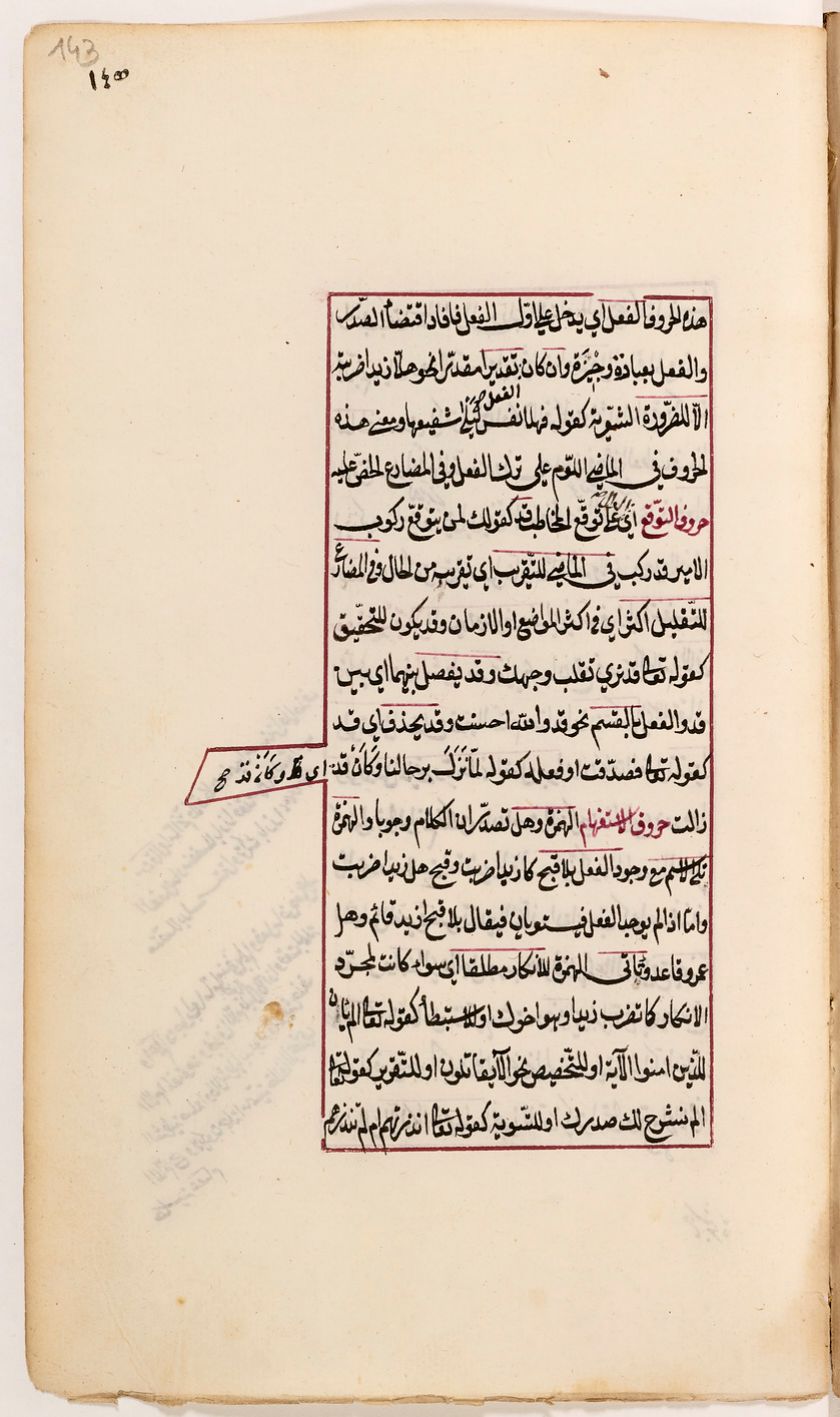 143
١٤٥
هذه الحروف الفعل اي يدخل علي اول الفعل فافاد اقتضأ الصّدر
والفعل بعبادة وجيزة وان كان تقديرا مقدّرا نحو هلّا زيدا ضربته
الّا للضرورة الشّعرية كقوله فهلا نفس ليلي شفيعها ومعني هذه
الفعل صح
الحروف في الماضي اللّوم علي ترك الفعل وفي المضارع الحضّ عليه
حروف التوّقع اي توقّع المخاطب قد كقولك لمن يتوقّع ركوب
الامير قد ركب في الماضي للتّقريب اي تقريبه من الحال وفي المضارع
للتّقليل اكثر اي في اكثر المواضع او الازمان وقد يكون للتحقيق
كقوله تعا قد نري تقلب وجهك وقد يفصل بينهما اي بين
قد والفعل بالقسم نحو قد والله احسنت وقد يحذف اي قد
كقوله تعا فصدّقت او فعله كقوله لمّا تزل برحالنا وكأن قد
اي قد وكأن قد صح
زالت حروف الاستفهام الهمزة وهل تصدّران الكلام وجوبا والهمزة
تلي الاسم مع وجود الفعل بلا قبح كازيدا ضربت وقبح هل زيدا ضربت
وامّا اذا لم يوجد الفعل فيستويان فيقال بلا قبح ازيد قائم وهل
عمرو قاعد وتأتي الهمزة للانكار مطلقا اي سواء كانت لمجرّد
الانكار كا تضرب زيدا وهو اخوك او للاستبطأ كقوله تعا الم يأن
للذين امنوا الآية او للتّخصيص نحو الا يقاتلون او للتّقرير كقوله تعا
الم نشرح لك صدرك او للتّسوية كقوله تعا اانذرتهم ام لم تنذرهم